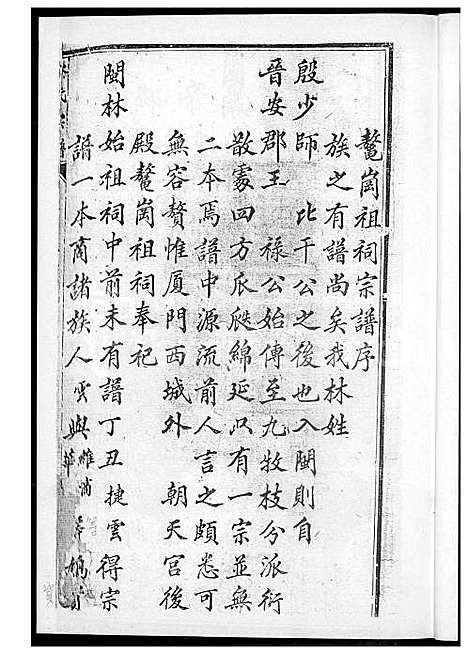 鰲崗祖祠宗譜序
族之有譜尚矣我林姓
殷少師　比干公之後也入閩則自
晉安郡王　祿公始傳至九牧枝分派衍
散處四方瓜瓞綿延以有一宗並無
二本焉譜中源流前人言之頗悉可
無容贅惟厦門西城外　朝天宮後
殿鰲崗祖祠奉祀
閩林始祖祠中前未有譜丁丑捷雲得宗
譜一本商諸族人雲與維
氏